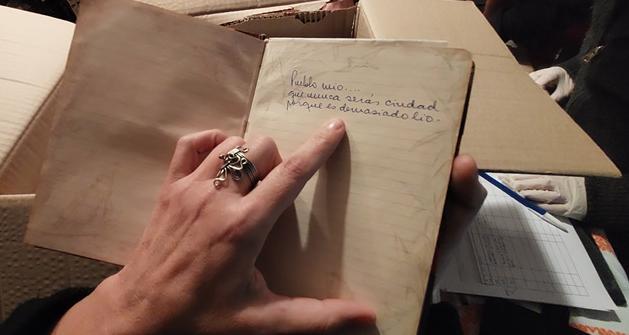 Pueblo mio....
que nunca serás ciudad
porque es demasiado lio.-